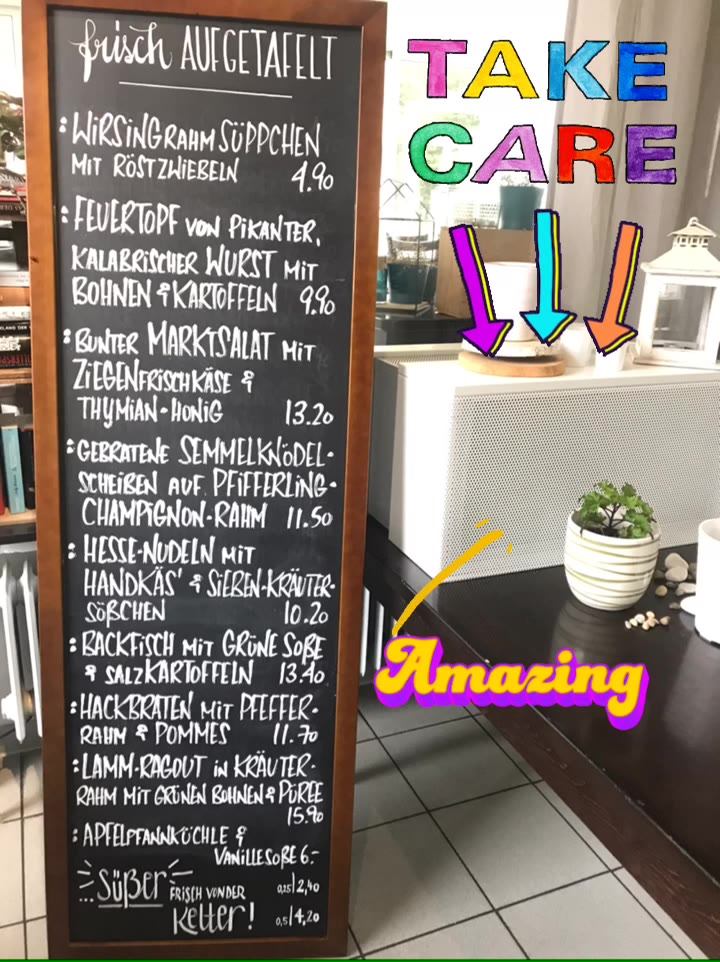 frisch AUFGETAFELT
: WIRSINGRAHMSÜPPCHEN
MIT RÖSTZWIEBELN 4.90
: FEUERTOPF VON PIKANTER,
KALABRISCHER WURST MIT
BOHNEN & KARTOFFELN 9.90
: BUNTER MARKTSALAT MIT
ZIEGENFRISCHKÄSE &
THYMIAN-HONIG 13.20
: GEBRATENE SEMMELKNÖDEL-
SCHEIBEN AUF PFIFFERLING-
CHAMPIGNON-RAHM 11.50
: HESSE-NUDELN MIT
HANDKÄS' & SIEBEN-KRÄUTER-
SÖßCHEN 10.20
: BACKFISCH MIT GRÜNE SOßE
& SALZKARTOFFELN 13.40
: HACKBRATEN MIT PFEFFER-
RAHM & POMMES 11.70
: LAMM-RAGOUT IN KRÄUTER-
RAHM MIT GRÜNEN BOHNEN & PÜREE
15.90
: APFELPFANNKÜCHLE &
VANILLESOßE 6.-
...Süßer FRISCH VON DER 0,25| 2,40
Kelter! 0,5| 4,20
TAKE
CARE
Amazing